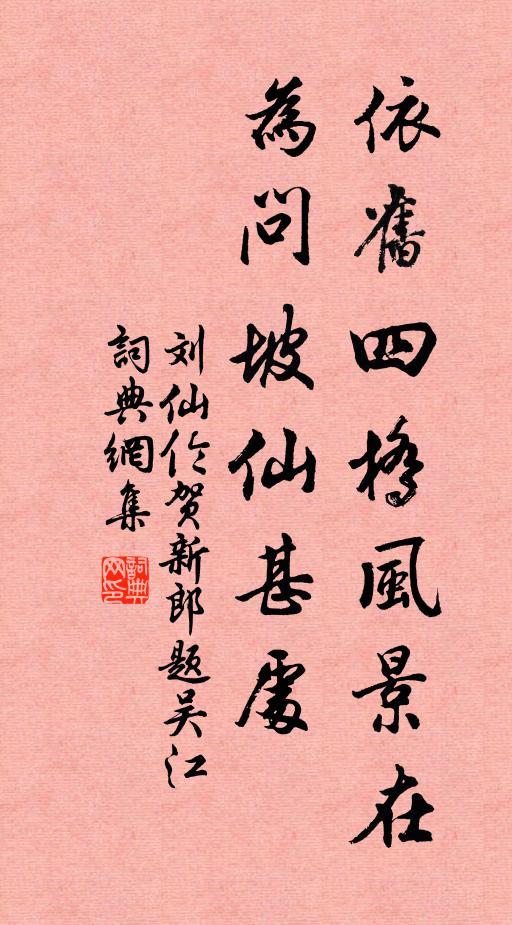 依舊四橋風景在
為問坡仙甚處
刘仙伦贺新郎题吴江
詞典網集
詞典网印